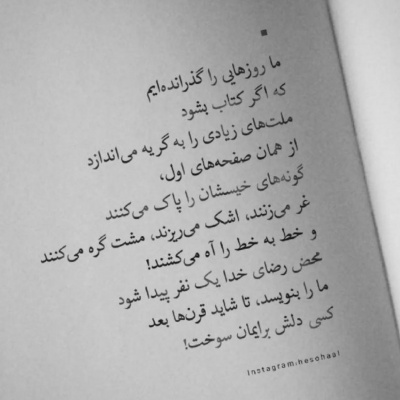 ما روزهایی را گذرانده‌ایم
که اگر کتاب بشود
ملت‌های زیادی را به گریه می‌اندازد
از همان صفحه‌های اول،
گونه‌های خیسشان را پاک می‌کنند
غر می‌زنند، اشک می‌ریزند، مشت گره می‌کنند
و خط به خط را آه می‌کشند!
محض رضای خدا یک نفر پیدا شود
ما را بنویسد، تا شاید قرن‌ها بعد
کسی دلش برایمان سوخت!
Instagram:hesohaal